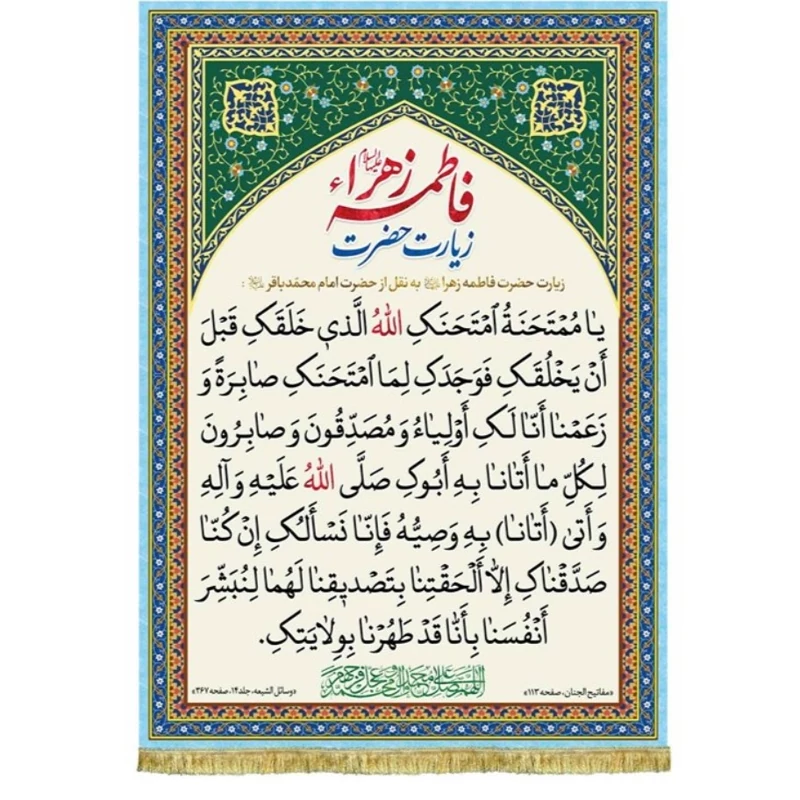 فاطمه زهراء
علیهاالسلام
زیارت حضرت
زیارت حضرت فاطمه زهرا به نقل از حضرت امام محمّدباقر :
یٰا مُمْتَحَنَةُ ٱمْتَحَنَکِ اللهُ الَّذي خَلَقَکِ قَبْلَ
أَنْ یَخْلُقَکِ فَوَجَدَکِ لِمَا ٱمْتَحَنَکِ صٰابِرَةً وَ
زَعَمْنٰا أَنّٰا لَکِ أَوْلِیٰاءُ وَ مُصَدِّقُونَ وَ صٰابِرُونَ
لِکُلِّ مٰا أَتٰانٰا بِهِ أَبُوکِ صَلَّی اللهُ عَلَیْهِ وَ آلِهِ
وَ أَتیٰ (أَتٰانٰا) بِهِ وَصِیُّهُ فَإِنّٰا نَسْأَلُکِ إِنْ کُنّٰا
صَدَّقْنٰاکِ إِلّٰا أَلْحَقْتِنٰا بِتَصْدیقِنٰا لَهُمٰا لِنُبَشِّرَ
أَنْفُسَنٰا بِأَنّٰا قَدْ طَهُرْنٰا بِوِلٰایَتِکِ.
اللهم صل علی محمد وآل محمد وعجل فرجهم
«مفاتیح الجنان، صفحه ۱۱۳»
«وسائل الشیعه، جلد ۱۴، صفحه ۳۶۷»